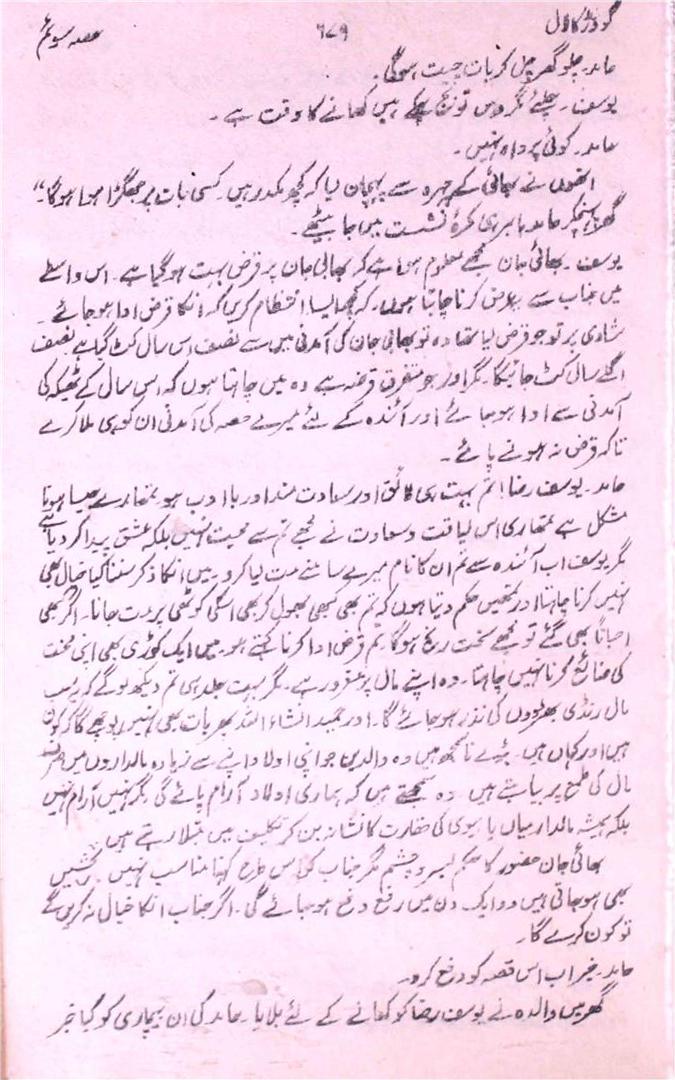 گودڑ کا لال ۶۷۹ حصہ سوئم
حامد۔ چلو گھر چل کر بات چیت ہوگی۔
یوسف۔ چلئے مگر دس تو بج چکے ہیں کھانے کا وقت ہے۔
حامد۔ کوئی پرواہ نہیں۔
انھوں نے بھائی کے چہرہ سے پہچان لیا کہ کچھ مکدر ہیں۔ کسی بات پر جھگڑا ہوا ہوگا۔"
گھر پہنچکر حامد باہر ہی کمرۂ نشست میں جا بیٹھے۔
یوسف۔ بھائی جان مجھے معلوم ہوا ہے کہ بھابی جان پر قرض بہت ہوگیا ہے۔ اس واسطے
میں جناب سے یہ عرض کرنا چاہتا ہوں۔ کہ کچھ ایسا انتظام کریں کہ انکا قرض ادا ہوجائے۔
شادی پر تو جو قرض لیا تھا وہ تو بھابی جان کی آمدنی میں سے نصف اس سال کٹ گیا ہے نصف
اگلے سال کٹ جائیگا۔ مگر اور جو متفرق قرضہ ہے وہ میں چاہتا ہوں کہ اس سال کے ٹھیکہ کی
آمدنی سے ادا ہوجائے اور آئندہ کے لئے میرے حصہ کی آمدنی ان کو ہی ملا کرے
تاکہ قرض نہ ہونے پائے۔
حامد۔ یوسف رضا! تم بہت ہی لائق اور سعادت مند اور باادب ہو تمھارے جیسا ہونا
مشکل ہے تمھاری اس لیاقت و سعادت نے مجھے تم سے محبت نہیں بلکہ عشق پیدا کر دیا ہے
مگر یوسف اب آئندہ سے تم ان کا نام میرے سامنے مت لیا کرو۔ میں انکا ذکر سننا کیا خیال بھی
نہیں کرنا چاہتا اور تمھیں حکم دیتا ہوں کہ تم بھی کبھی بھول کر بھی اسکی کوٹھی پر مت جانا۔ اگر کبھی
احیاناً بھی گئے تو مجھے سخت رنج ہوگا۔ تم قرض ادا کرنا کہتے ہو۔ میں ایک کوڑی بھی اپنی محنت
کی ضائع کرنا نہیں چاہتا۔ وہ اپنے مال پر مغرور ہے۔ مگر بہت جلد ہی تم دیکھ لوگے کہ یہ سب
مال رنڈی بھڑووں کی نذر ہوجائے گا۔ اور انشاء اللہ پھر بات بھی نہیں پوچھے گا کہ کون
ہیں اور کہاں ہیں۔ بڑے ناسمجھ ہیں وہ والدین جو اپنی اولاد اپنے سے زیادہ مالداروں میں
مال کی طمع پر بیاہتے ہیں۔ وہ سمجھتے ہیں کہ ہماری اولاد آرام پائے گی۔ مگر نہیں آرام نہیں
بلکہ ہمیشہ مالدار میاں یا بیوی کی حقارت کا نشانہ بن کر تکلیف میں مبتلا رہتے ہیں۔
بھائی جان حضور کا حکم بسر و چشم مگر جناب کو اس طرح کہنا مناسب نہیں۔ رنجشیں
بھی ہوجاتی ہیں دو ایک دن میں رفع دفع ہوجائے گی۔ اگر جناب انکا خیال نہ کریں گے
تو کون کرے گا۔
حامد۔ خیر اب اس قصہ کو دفع کرو۔
گھر میں والدہ نے یوسف رضا کو کھانے کے لئے بلایا۔ حامد کی ان بیچاری کو کیا خبر